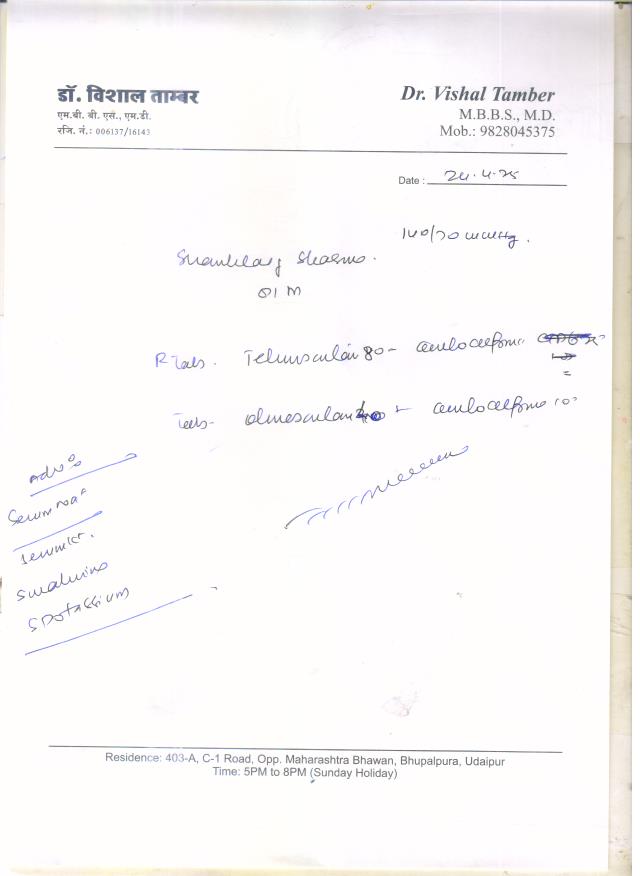 डॉ. विशाल ताम्बर
एम.बी. बी. एस., एम.डी.
रजि. नं.: 006137/16143
Dr. Vishal Tamber
M.B.B.S., M.D.
Mob.: 9828045375
Date : 24.4.25
140/70 mmHg.
Sharma.
81 M
R Tab. Telmisartan 80 - amlodipine
Tab- olmesartan 40 + amlodipine 10
Adv:
Serum Na+
Serum K+.
S Potassium
Residence: 403-A, C-1 Road, Opp. Maharashtra Bhawan, Bhupalpura, Udaipur
Time: 5PM to 8PM (Sunday Holiday)